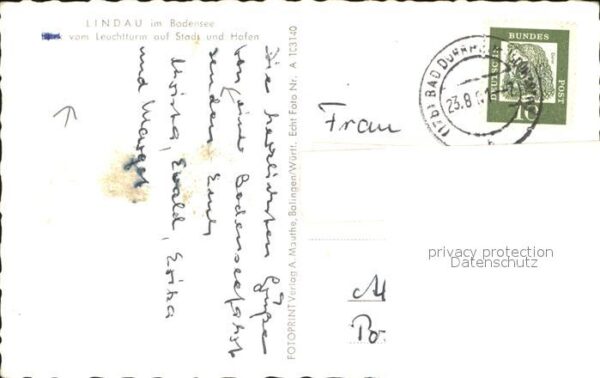 LINDAU im Bodensee
vom Leuchtturm auf Stadt und Hafen
Die herzlichsten Grüße
von einer Bodenseefahrt
senden Euch
Christa, Ewald, Erika
und Margot
FOTOPRINT Verlag A. Mauthe, Balingen/Württ. Echt Foto Nr. A 103140
Frau
M
Po
DEUTSCHE BUNDES POST
10
(17b) BAD DÜRRHEIM
23.8
privacy protection
Datenschutz